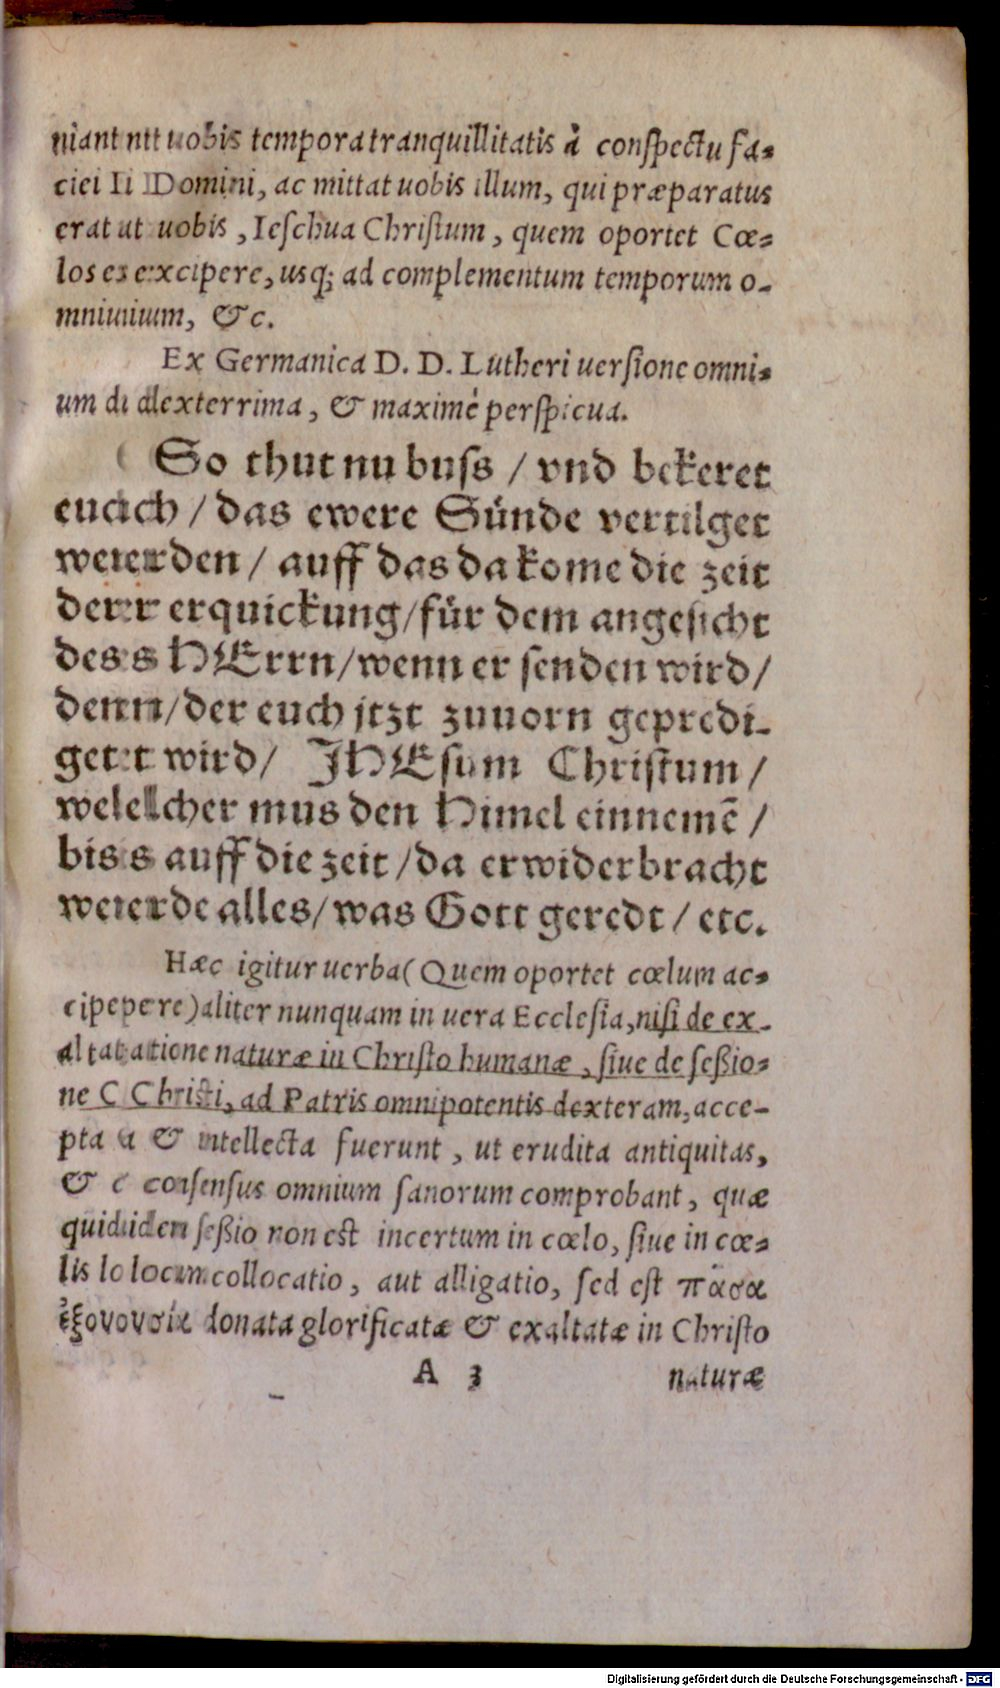 niant uobis tempora tranquillitatis à conspectu fa-
ciei Domini, ac mittat uobis illum, qui præparatus
erat uobis, Ieschua Christum, quem oportet Cœ-
los excipere, usq; ad complementum temporum o-
mnium, &c.
Ex Germanica D. D. Lutheri uersione omni-
um dexterrima, & maximè perspicua.
So thut nu buss / vnd bekeret
euch / das ewere Sünde vertilget
werden / auff das da kome die zeit
der erquickung/für dem angesicht
des HErrn/wenn er senden wird/
den/der euch jtzt zuuorn gepredi-
get wird/ JHEsum Christum /
welcher mus den Himel einnemē /
bis auff die zeit /da erwiderbracht
werde alles/was Gott geredt / etc.
Hæc igitur uerba (Quem oportet cœlum ac-
cipere) aliter nunquam in uera Ecclesia, nisi de ex-
altatione naturæ in Christo humanæ, siue de seßio-
ne Christi, ad Patris omnipotentis dexteram, acce-
pta & intellecta fuerunt, ut erudita antiquitas,
& consensus omnium sanorum comprobant, quæ
quidem seßio non est incertum in cœlo, siue in cœ-
lis locum collocatio, aut alligatio, sed est πᾶσα
ἐξουσία donata glorificatæ & exaltatæ in Christo
A 3 naturæ
Digitalisierung gefördert durch die Deutsche Forschungsgemeinschaft - DFG